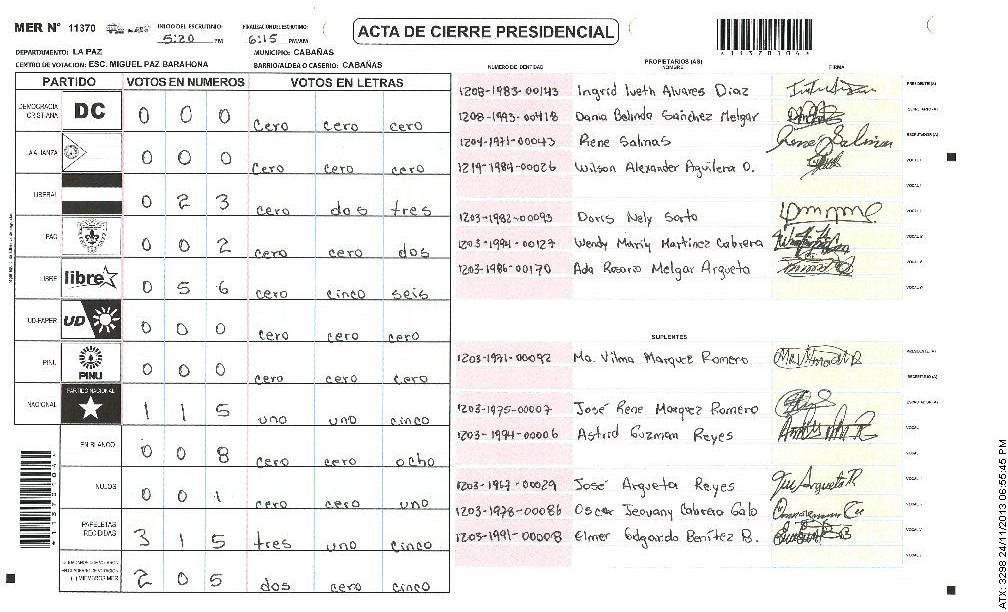 MER N° 11370
INICIO DEL ESCRUTINIO: 5:20 PM
FINALIZACION ESCRUTINIO: 6:15 PM/AM
ACTA DE CIERRE PRESIDENCIAL
*1137014*
DEPARTAMENTO: LA PAZ
MUNICIPIO: CABAÑAS
CENTRO DE VOTACION: ESC. MIGUEL PAZ BARAHONA
BARRIO/ALDEA O CASERIO: CABAÑAS
PARTIDO VOTOS EN NUMEROS VOTOS EN LETRAS
DEMOCRACIA CRISTIANA DC 0 0 0 cero cero cero
LA ALIANZA 0 0 0 cero cero cero
LIBERAL 0 2 3 cero dos tres
PAC 0 0 2 cero cero dos
LIBRE libre 0 5 6 cero cinco seis
UD-FAPER UD 0 0 0 cero cero cero
PINU PINU 0 0 0 cero cero cero
NACIONAL PARTIDO NACIONAL 1 1 5 uno uno cinco
EN BLANCO 0 0 8 cero cero ocho
NULOS 0 0 1 cero cero uno
PAPELETAS RECIBIDAS 3 1 5 tres uno cinco
2 0 5 dos cero cinco
NUMERO DE IDENTIDAD PROPIETARIOS (AS) NOMBRE FIRMA
1208-1983-00143 Ingrid Iveth Alvares Diaz PRESIDENTE(A)
1208-1993-00418 Dania Belinda Sanchez Melgar SECRETARIO(A)
1204-1971-00043 Rene Salinas ESCRUTADOR(A)
1219-1984-00026 Wilson Alexander Aguilera O. VOCAL I
1203-1982-00093 Doris Nely Sorto
1203-1994-00127 Wendy Marily Martinez Cabrera
1203-1986-00170 Ada Rosario Melgar Argueta
SUPLENTES
1203-1971-00092 Ma. Vilma Marquez Romero PRESIDENTE(A)
SECRETARIO(A)
1203-1975-00007 José Rene Marquez Romero ESCRUTADOR(A)
1203-1994-00006 Astrid Guzman Reyes
1203-1967-00029 José Argueta Reyes
1203-1978-00086 Oscar Jeovany Cabrera Galo
1203-1991-00008 Elmer Edgardo Benítez B.
ATX: 3298 24/11/2013 06:55:45 PM